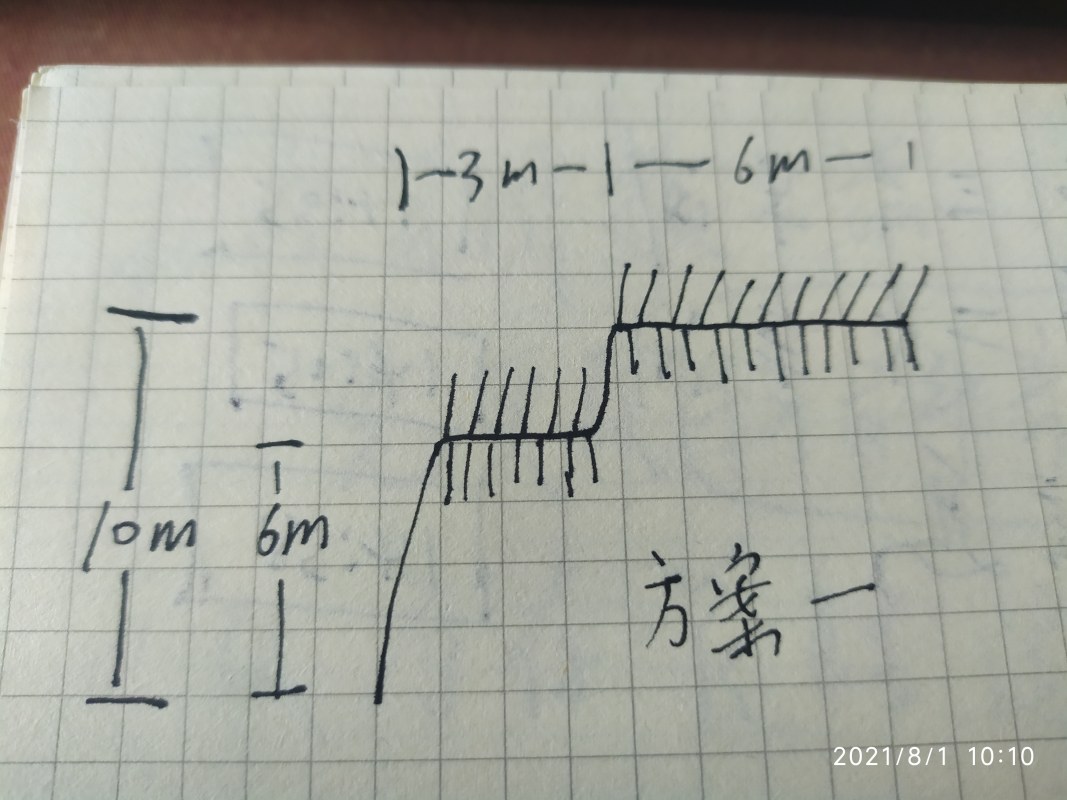 3m 6m
10m 6m
方案一
2021/8/1 10:10